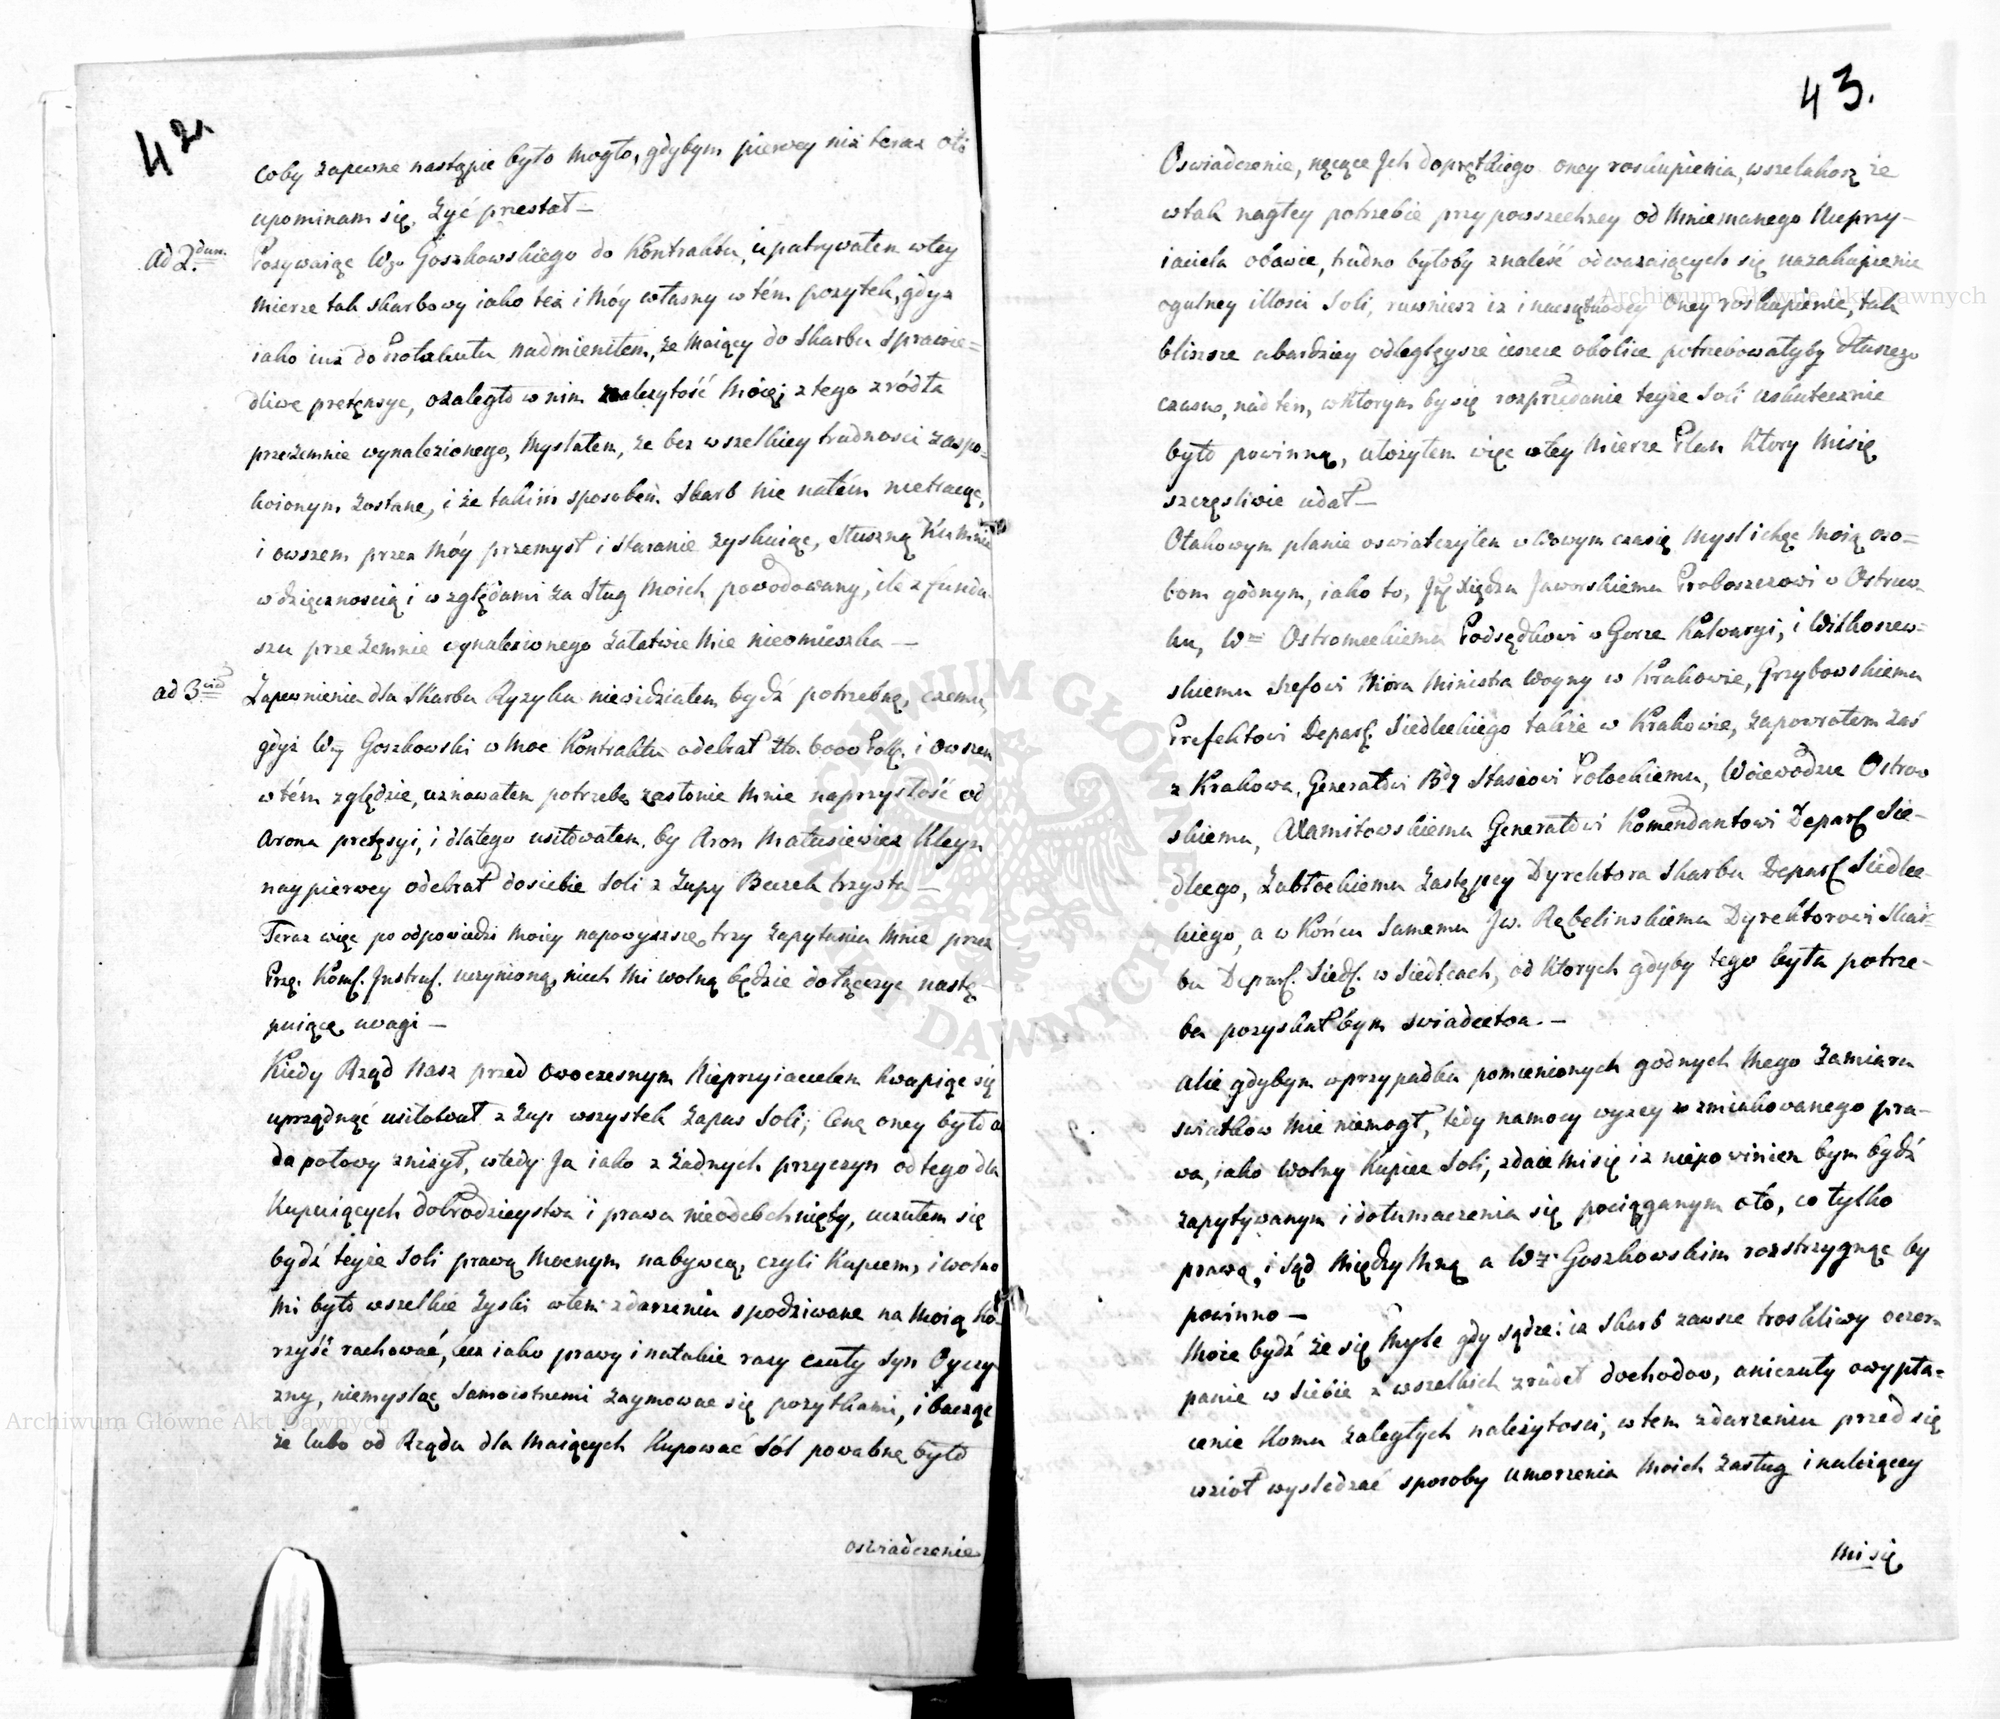 42.
coby zapewne nastąpic było mogło, gdybym pierwey niż teraz oto
upominam się, żyć przestał —
ad 2dum. Pozywaiąc Wgo Goszkowskiego do Kontraktu, upatrywałem wtey
mierze tak skarbowy iako też i móy własny w tém pożytek, gdyż
iako iuż do Protokułu nadmieniłem, że maiący do Skarbu sprawie=
dliwe pretęnsye, ozaległą w nim należytość moię; z tego zródła
przezemnie wynalezionego, myslałem, że bez wszelkiey trudnosci zaspo-
koionym zostanę, i że takim sposobem Skarb nic natém nietracąc,
i owszem przez móy przemysł i staranie zyskuiąc, słuszną ku mnie
wdzięcznoscią i względami za sług moich powodowany, ile z fundu
szu przezemnie wynalezionego załatwic mie nieomieszka —
ad 3cie Zapewnienia dla Skarbu Ryzyka niewidziałem bydź potrzebną, czemu,
gdyż Wny Goszkowski w moc Kontraktu odebrał Złt. 6000 Polk. i owszem
w tém zględzie, uznawałem potrzebę zasłonic mnie naprzyszłość od
Arona pretęsyi, i dlatego usiłowałem, by Aron Matusiewicz Kleyn
naypierwey odebrał dosiebie soli z Zupy Beczek trzysta —
Teraz więc po odpowiedzi moiey napowyższe trzy zapytania mnie przez
Prze. Kom. Instruk. uczynioną, niech mi wolną będzie dołączyc nastę-
puiące uwagi —
Kiedy Rząd Nasz przed owoczesnym Nieprzyiacielem kwapiąc się
uprzątnąć usiłował z Zup wszystek Zapas Soli, Cenę oney było a
do połowy zniżył, wtedy Ja iako z żadnych przyczyn od tego dla
Kupuiących dobrodzieystwa i prawa nieodebchnięty, uczułem się
bydź teyże Soli prawą mocnym nabywcą, czyli Kupcem, i wolno
mi było wszelkie Zyski wtem zdarzeniu spodziwane na moią ko-
rzyść rachować, lecz iako prawy i natakie razy czuły Syn Oyczy
zny, niemysląc samoistnemi zaymowac się pożytkami, i bacząc
że lubo od Rządu dla maiących Kupować Sól powabne było
oswiadczenie
43.
Oswiadczenie, nęcące Ich doprętkiego oney roskupienia, wszelakosz że
wtak nagłey potrzebie przy powszechney od mniemanego Nieprzy-
iaciela obawie, trudno byłoby znaleść odważaiących się nazakupienie
ogulney illosci Soli, rawniesz iż i naczątkowey oney roskupienie, tak
bliższe abardziey odległęysze ieszcze okolice potrzebowałyby dłuszego
czasu, nad ten, wktorym by się rozprzedanie teyże Soli uskutecznic
było powinną, ułożyłem więc wtey mierze Plan Ktory misię
szczęsliwie udał —
Otakowym planie oswiatczyłem w owym czasię mysl ichęc moią oso=
bom godnym, iako to, JX. Xiędzu Jaworskiemu Proboszczowi w Ostrow
ku, W= Ostromeckiemu Podsędkowi w Gorze Kalwaryi, i Witkoszew-
skiemu szefowi Biora Ministra Woyny w Krakowie, Grzybowskiemu
Prefektowi Depar. Siedleckiego także w Krakowie, zapowrotem zaś
z Krakowa, Generałowi Bdy Stasiowi Potockiemu, Woiewodzie Ostrow
skiemu, Alamitowskiemu Generałowi Komendantowi Depar. Sie-
dleego, Zabłockiemu Zastępcy Dyrektora Skarbu Depar. Siedlec-
kiego, a w Końcu Samemu Jw. Rębelinskiemu Dyrektorowi Skar-
bu Depar. Siedl. w Siedlcach, od Ktorych gdyby tego była potrze-
ba pozyskałbym swiadectwa. —
Ale gdybym wprzypadku pomienionych godnych mego zamiaru
swiatków mie niemogł, tedy namocy wyzey wzmiakowanego pra-
wa, iako wolny Kupiec Soli, zdaie misię iż niepowinien bym bydź
zapytywanym i dotłumaczenia się pociąganym oto, co tylko
prawą, i Sąd między mną a Wm Goszkowskim rozstrzygnąc by
powinno —
Może bydź że się mylę gdy sądzę: iż Skarb zawsze troskliwy oczer-
panie w siebie z wszelkich zrudeł dochodow, anieczuły owypła=
cenie komu zaległych należytosci, wtem zdarzeniu przed się
wziął wysledzać sposoby umorzenia moich zasług i należącey
mi się